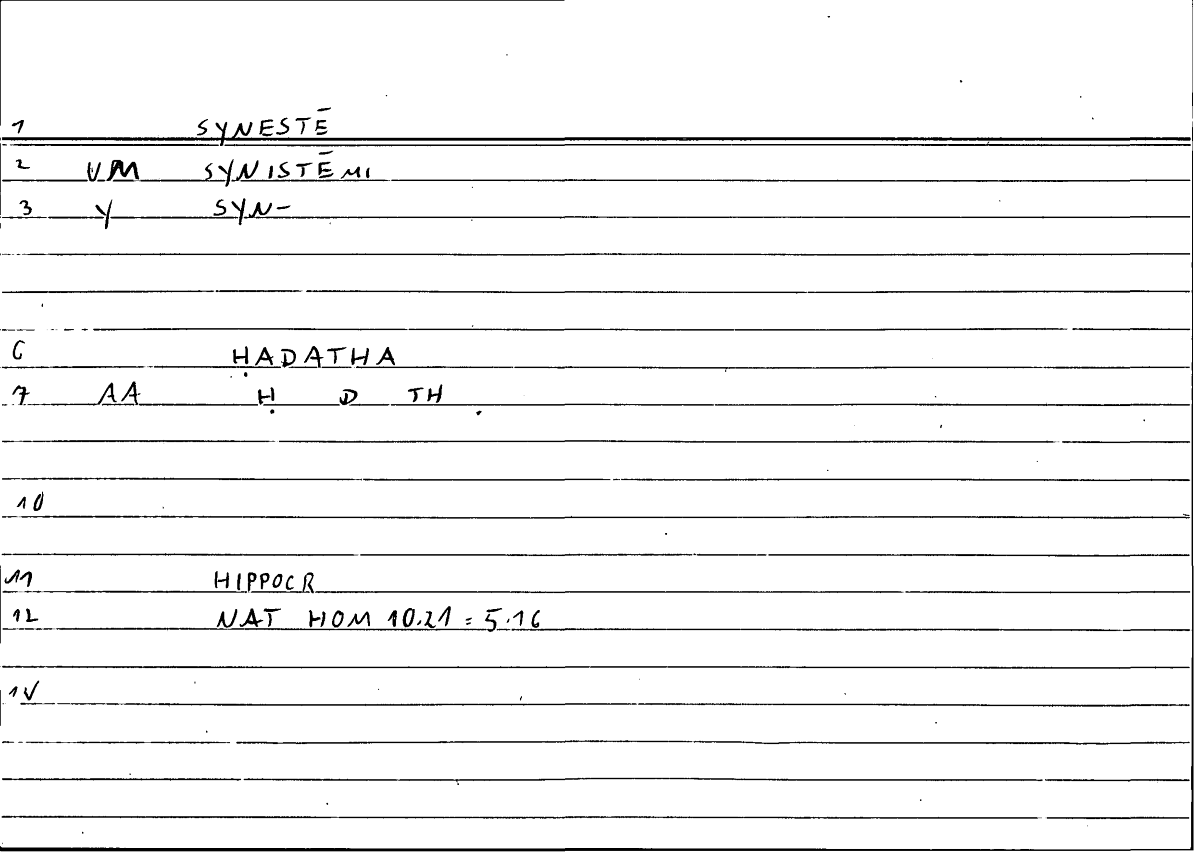 1 SYNESTĒ
2 VM SYNISTĒMI
3 Y SYN-
6 ḤADATHA
7 AA Ḥ D TH
10
11 HIPPOCR
12 NAT HOM 10.21 = 5.16
1V